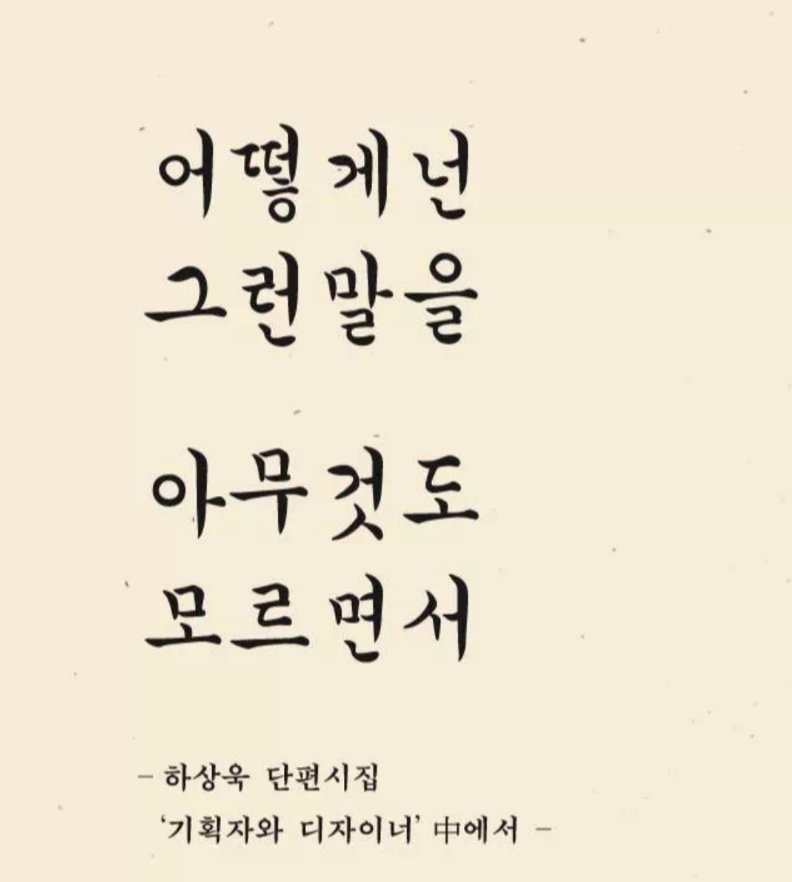 어떻게넌
그런말을
아무것도
모르면서
- 하상욱 단편시집
‘기획자와 디자이너’ 中에서 -